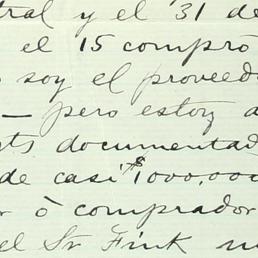 tral y el 31 de
el 15 compró
soy el proveedo
— pero estoy a
ts documentad
de casi $1000.000
r ò comprador
el Sr Fink m